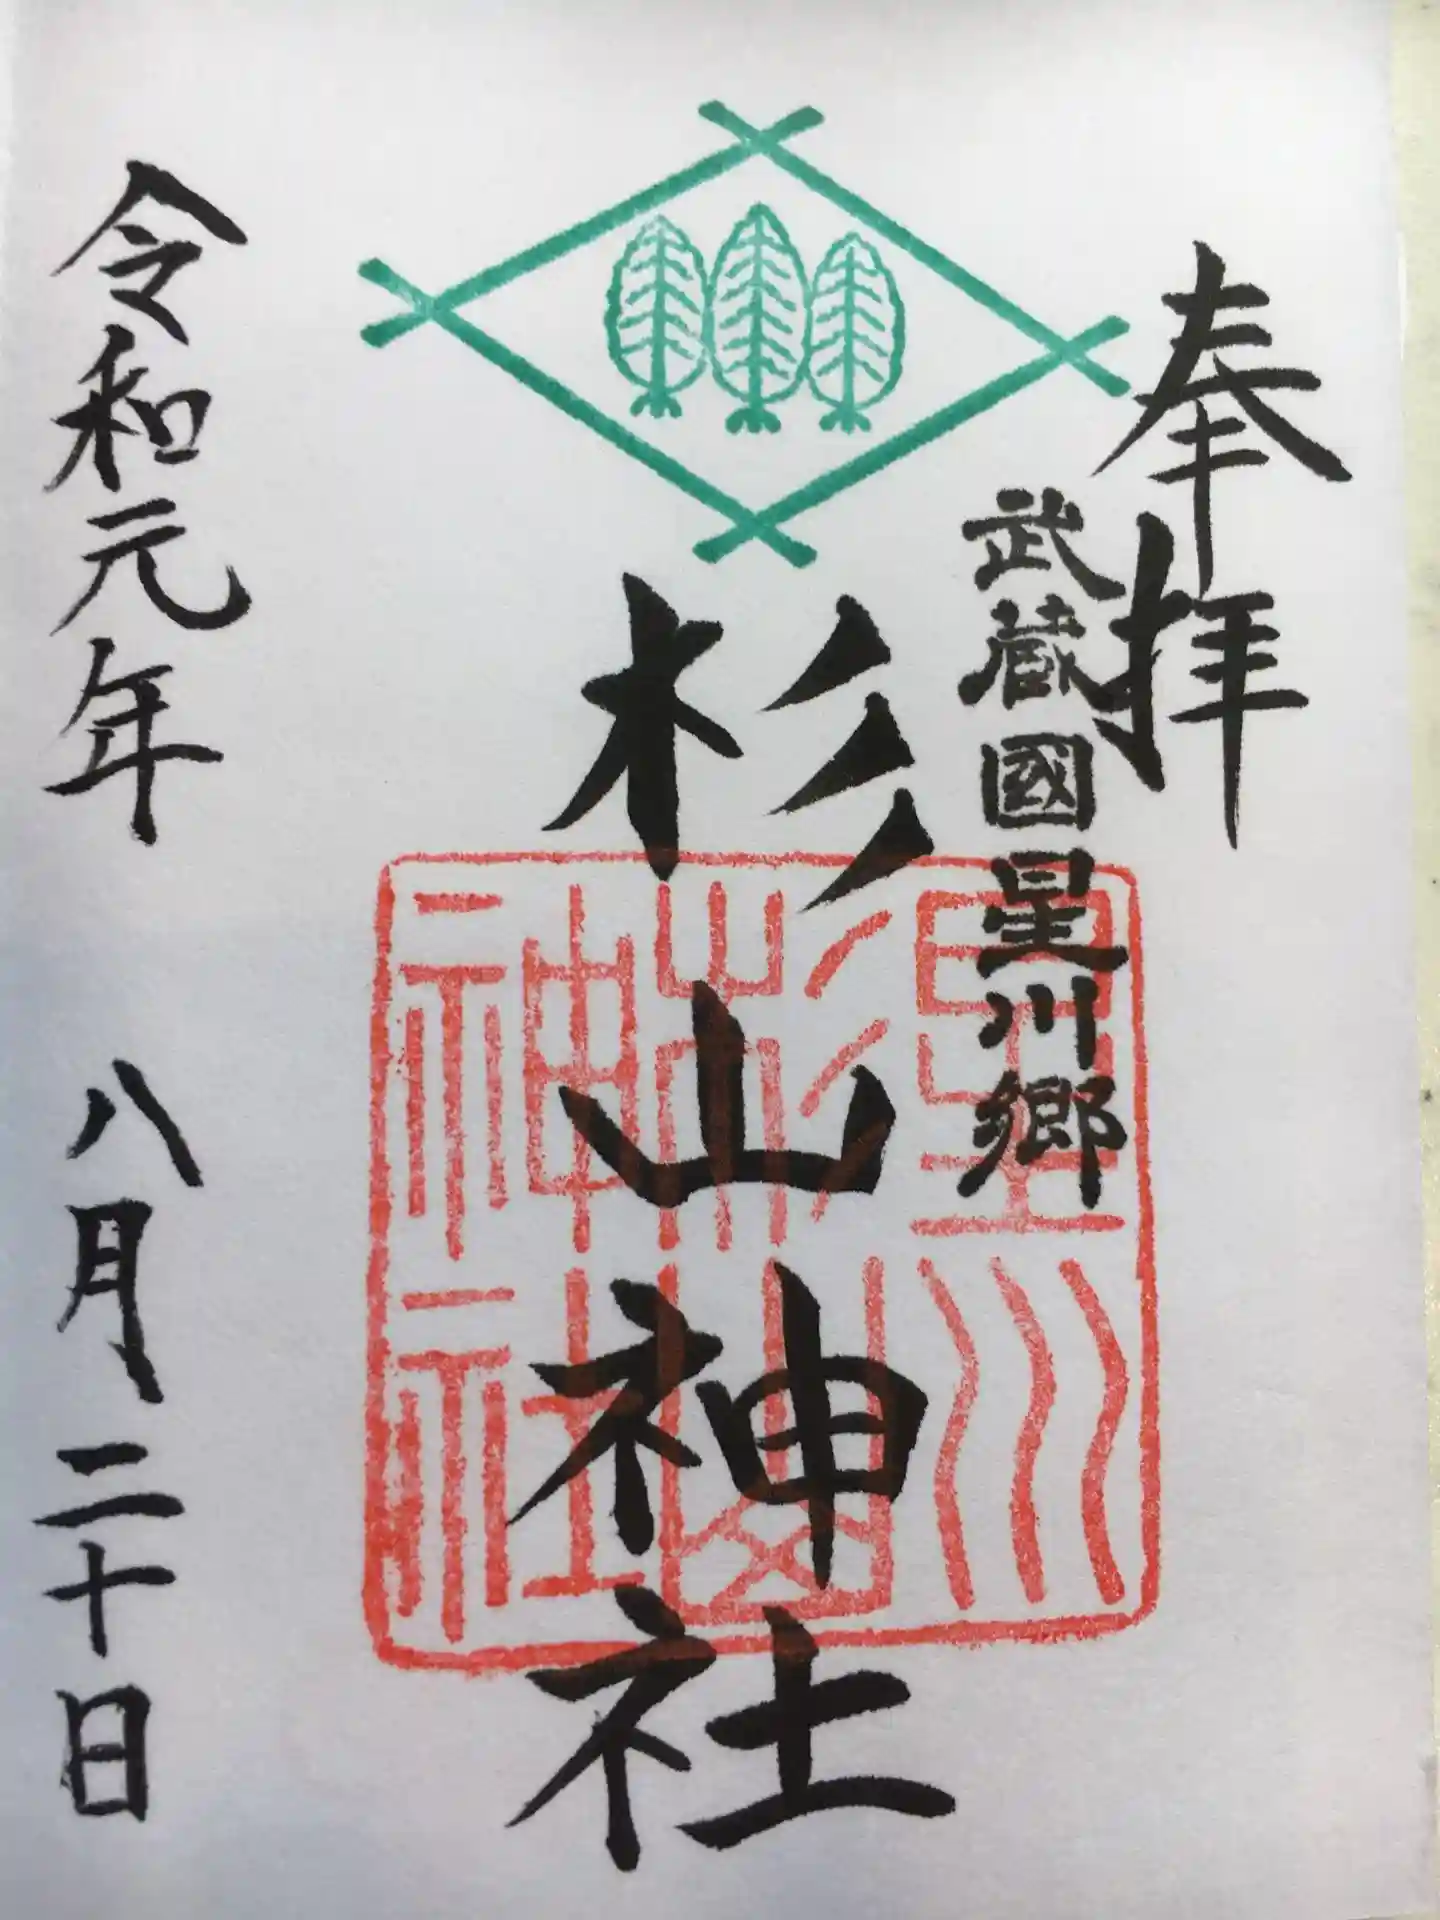 奉拝
武蔵國星川郷
杉山神社
星川
杉山
神社
令和元年 八月二十日